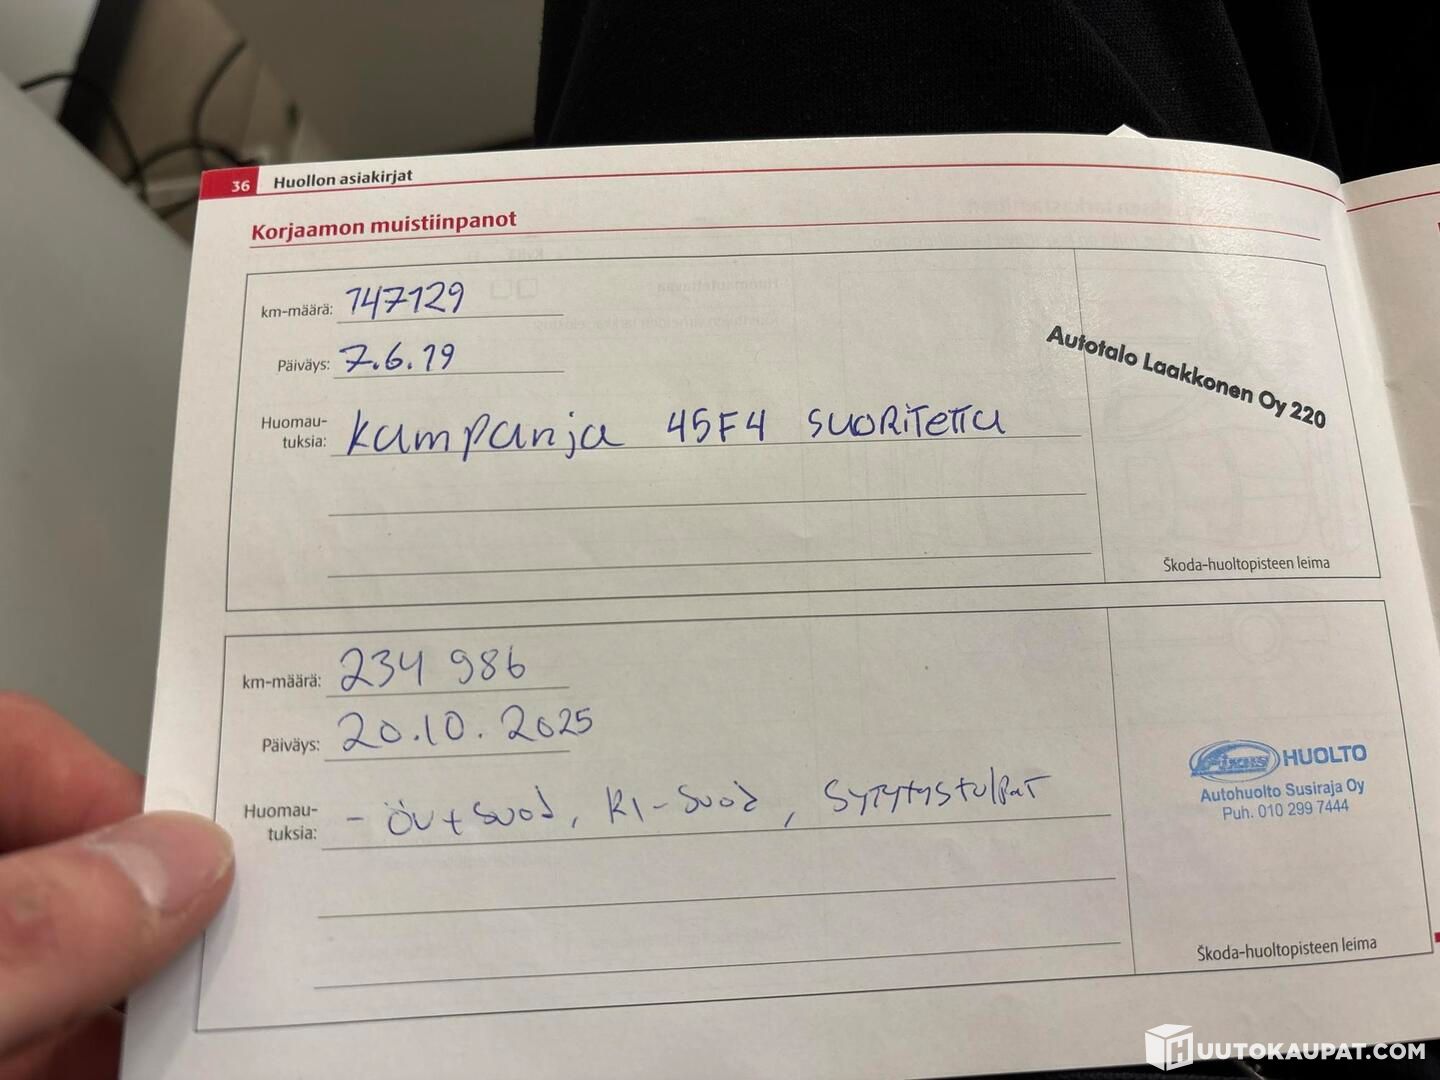 36 Huollon asiakirjat
Korjaamon muistiinpanot
km-määrä: 147129
Päiväys: 7.6.19
Huomau-
tuksia: Kampanja 45F4 suoritettu
Autotalo Laakkonen Oy 220
Škoda-huoltopisteen leima
km-määrä: 234 986
Päiväys: 20.10.2025
Huomau-
tuksia: - ÖV+suod, RI-suod, sytytystulpat
HUOLTO
Autohuolto Susiraja Oy
Puh. 010 299 7444
Škoda-huoltopisteen leima
HUUTOKAUPAT.COM